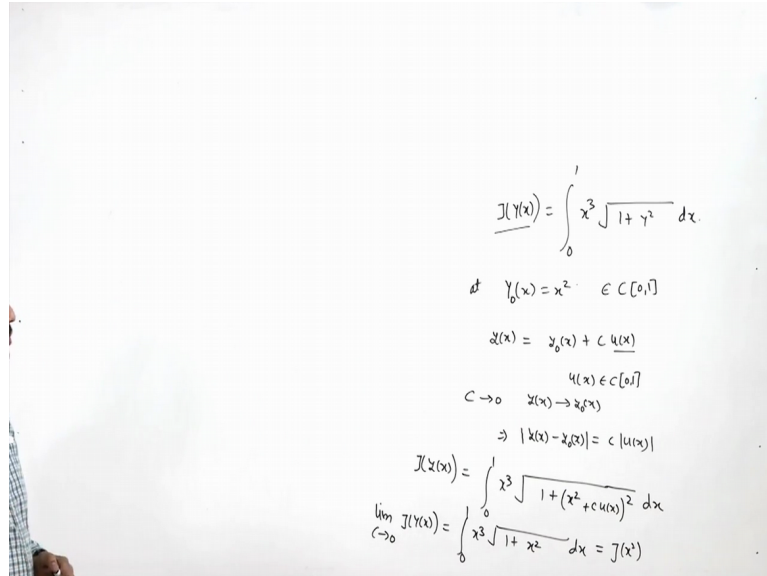 J(Y(x)) = ∫₀¹ x³ √(1 + y²) dx.
at Y₀(x) = x² ∈ C[0,1]
y(x) = y₀(x) + C u(x)
u(x) ∈ C[0,1]
C → 0 y(x) → y₀(x)
⇒ |y(x) - y₀(x)| = C |u(x)|
J(y(x)) = ∫₀¹ x³ √(1 + (x² + C u(x))²) dx
lim C→0 J(Y(x)) = ∫₀¹ x³ √(1 + x²) dx = J(x²)